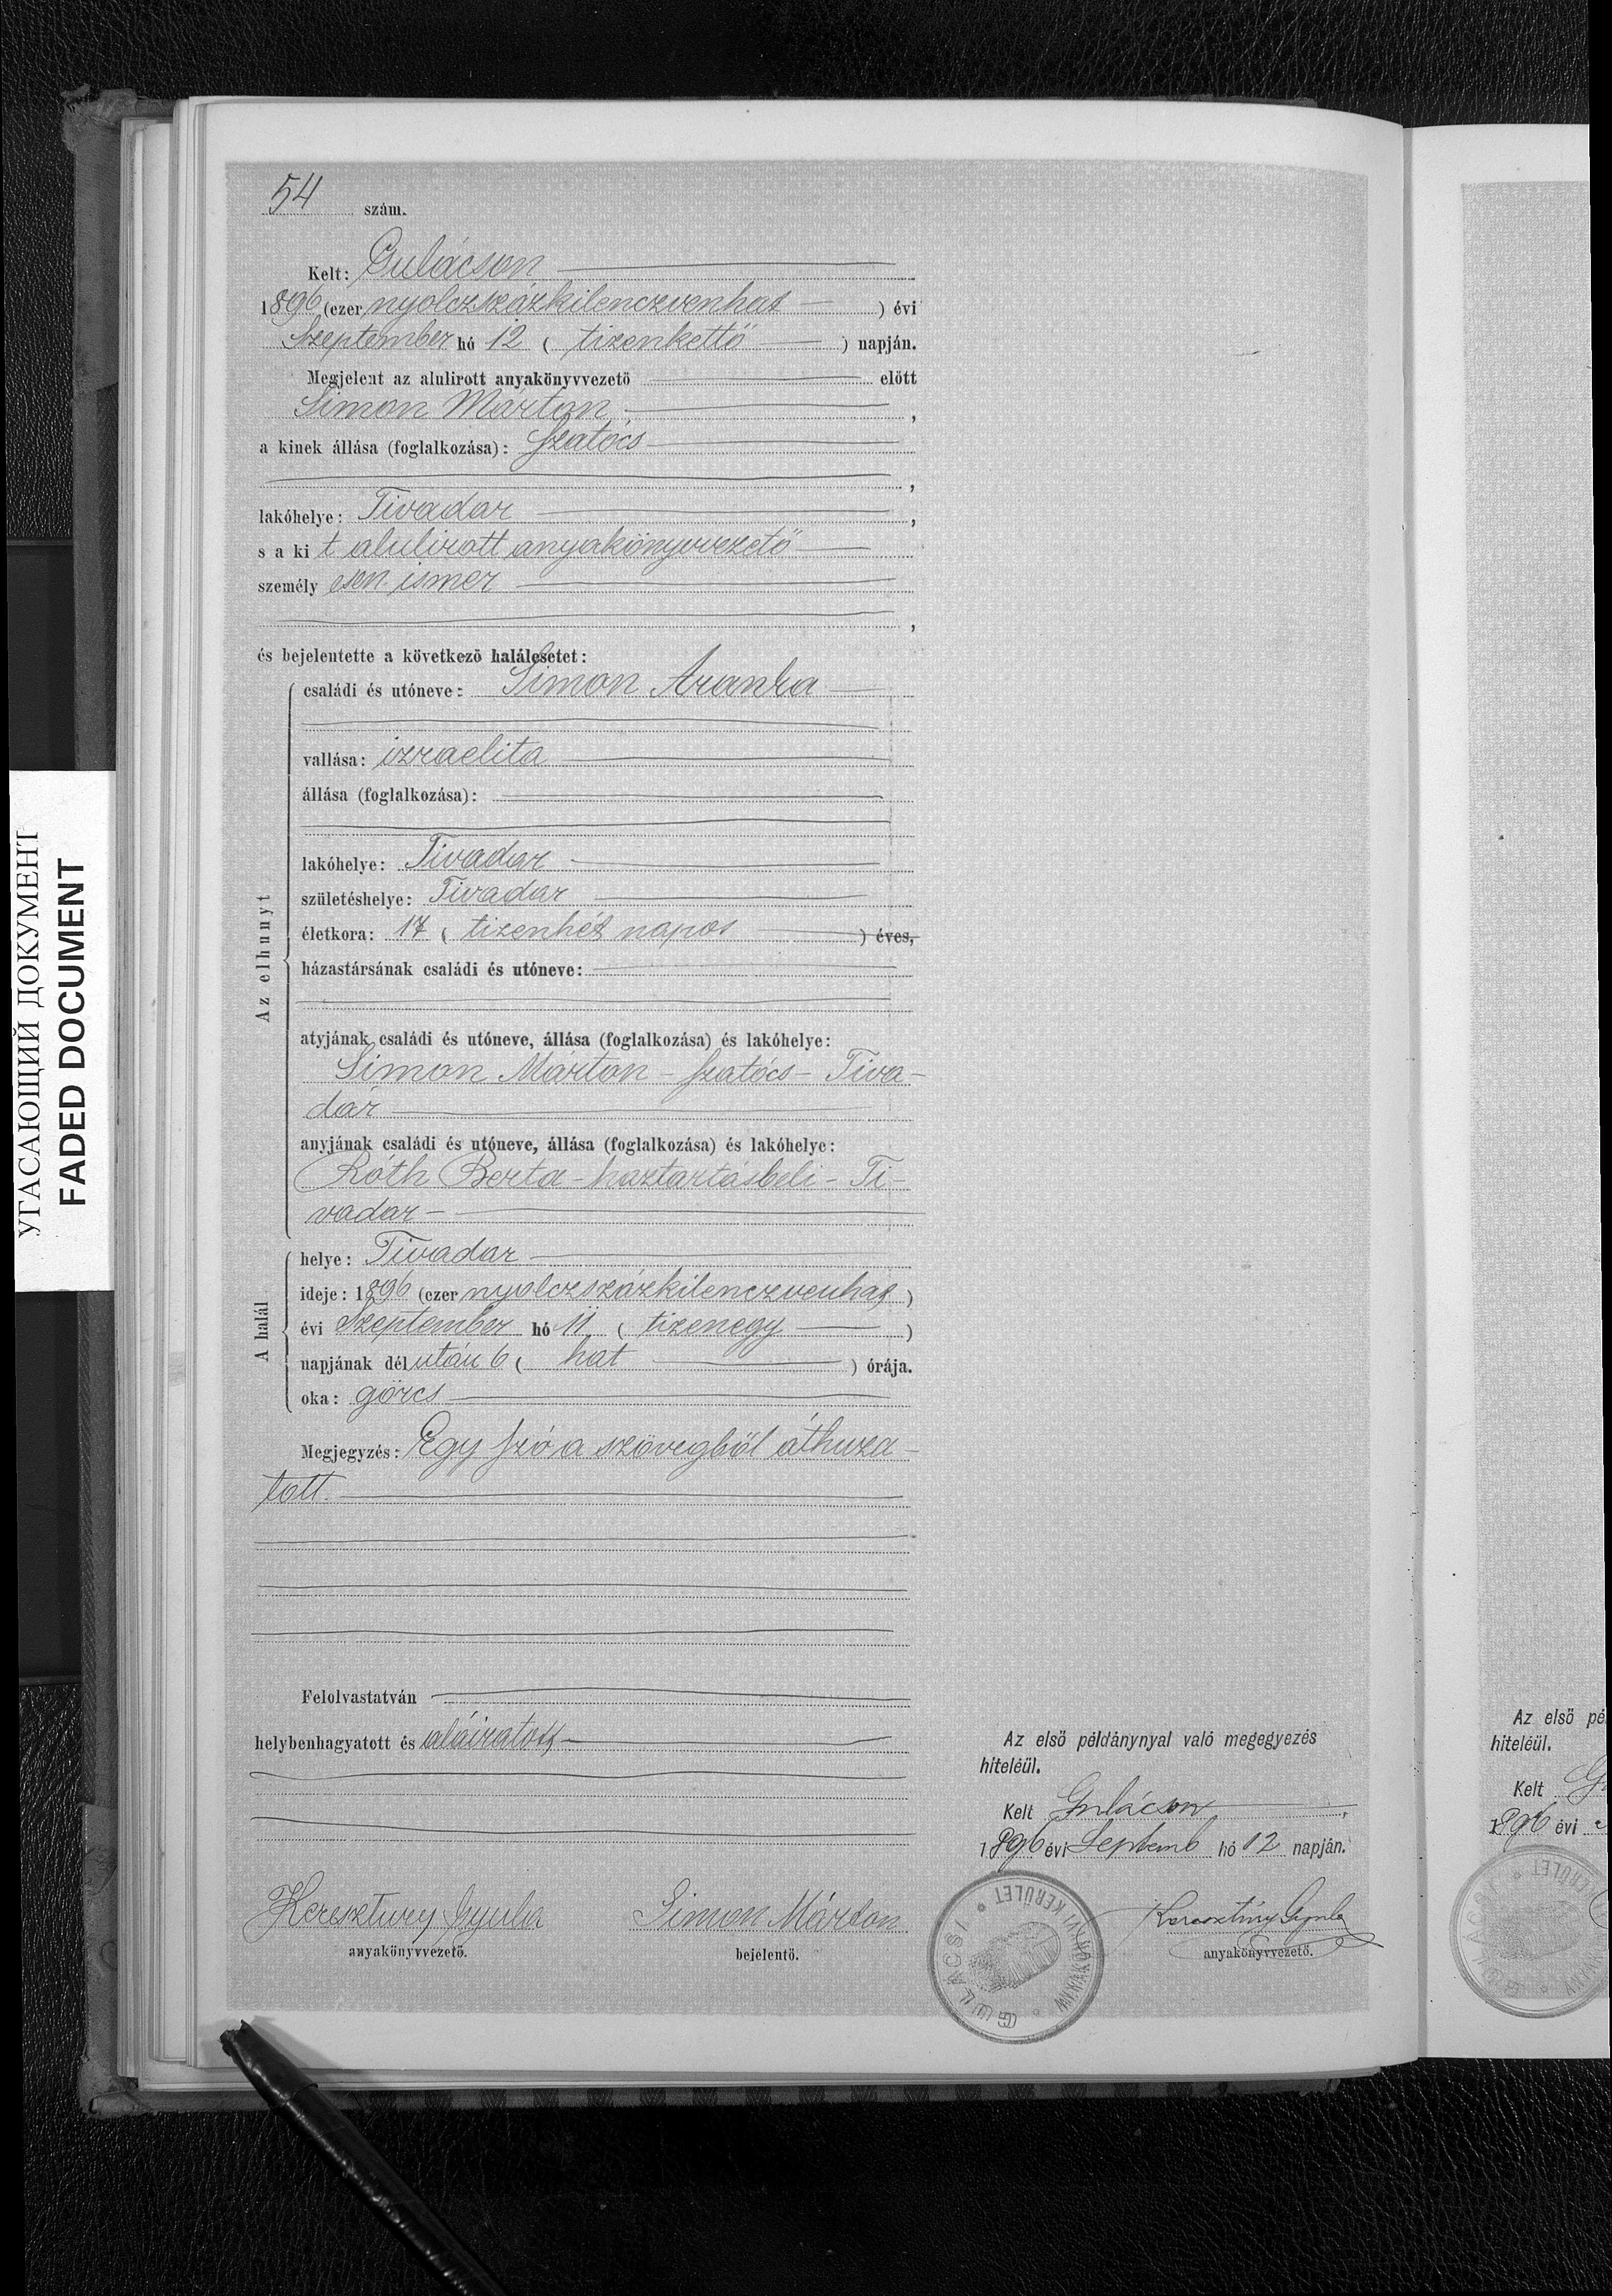 54 szám.
Kelt: Gulácson
1896 (ezer nyolczszázkilenczvenhat ) évi
Szeptember hó 12 ( tizenkettő ) napján.
Megjelent az alulirott anyakönyvvezető előtt
Simon Márton ,
a kinek állása (foglalkozása): szatócs
,
lakóhelye: Tivadar ,
s a ki t alulirott anyakönyvvezető
személy esen ismer
,
és bejelentette a következő halálesetet:
Az elhunyt
családi és utóneve: Simon Aranka
vallása: izraelita
állása (foglalkozása):
lakóhelye: Tivadar
születéshelye: Tivadar
életkora: 17 ( tizenhét napos ) éves,
házastársának családi és utóneve:
atyjának családi és utóneve, állása (foglalkozása) és lakóhelye:
Simon Márton - szatócs - Tiva-
dar
anyjának családi és utóneve, állása (foglalkozása) és lakóhelye:
Róth Berta - haztartásbeli - Ti-
vadar -
A halál
helye: Tivadar
ideje: 1896 (ezer nyolczszázkilenczvenhat )
évi Szeptember hó 11 ( tizenegy )
napjának dél után 6 ( hat ) órája.
oka: görcs
Megjegyzés: Egy szó a szövegből áthuza-
tott.
Felolvastatván
helybenhagyatott és aláiratott
Keresztury Gyula
anyakönyvvezető.
Simon Márton
bejelentő.
Az első példánynyal való megegyezés
hiteléül.
Kelt Gulácson ,
1896 évi Septemb hó 12 napján.
Keresztury Gyula
anyakönyvvezető.
GULÁCSI ANYAKÖNYVI KERÜLET
Az első pé
hiteléül.
Kelt G
1896 évi
УГАСАЮЩИЙ ДОКУМЕНТ
FADED DOCUMENT